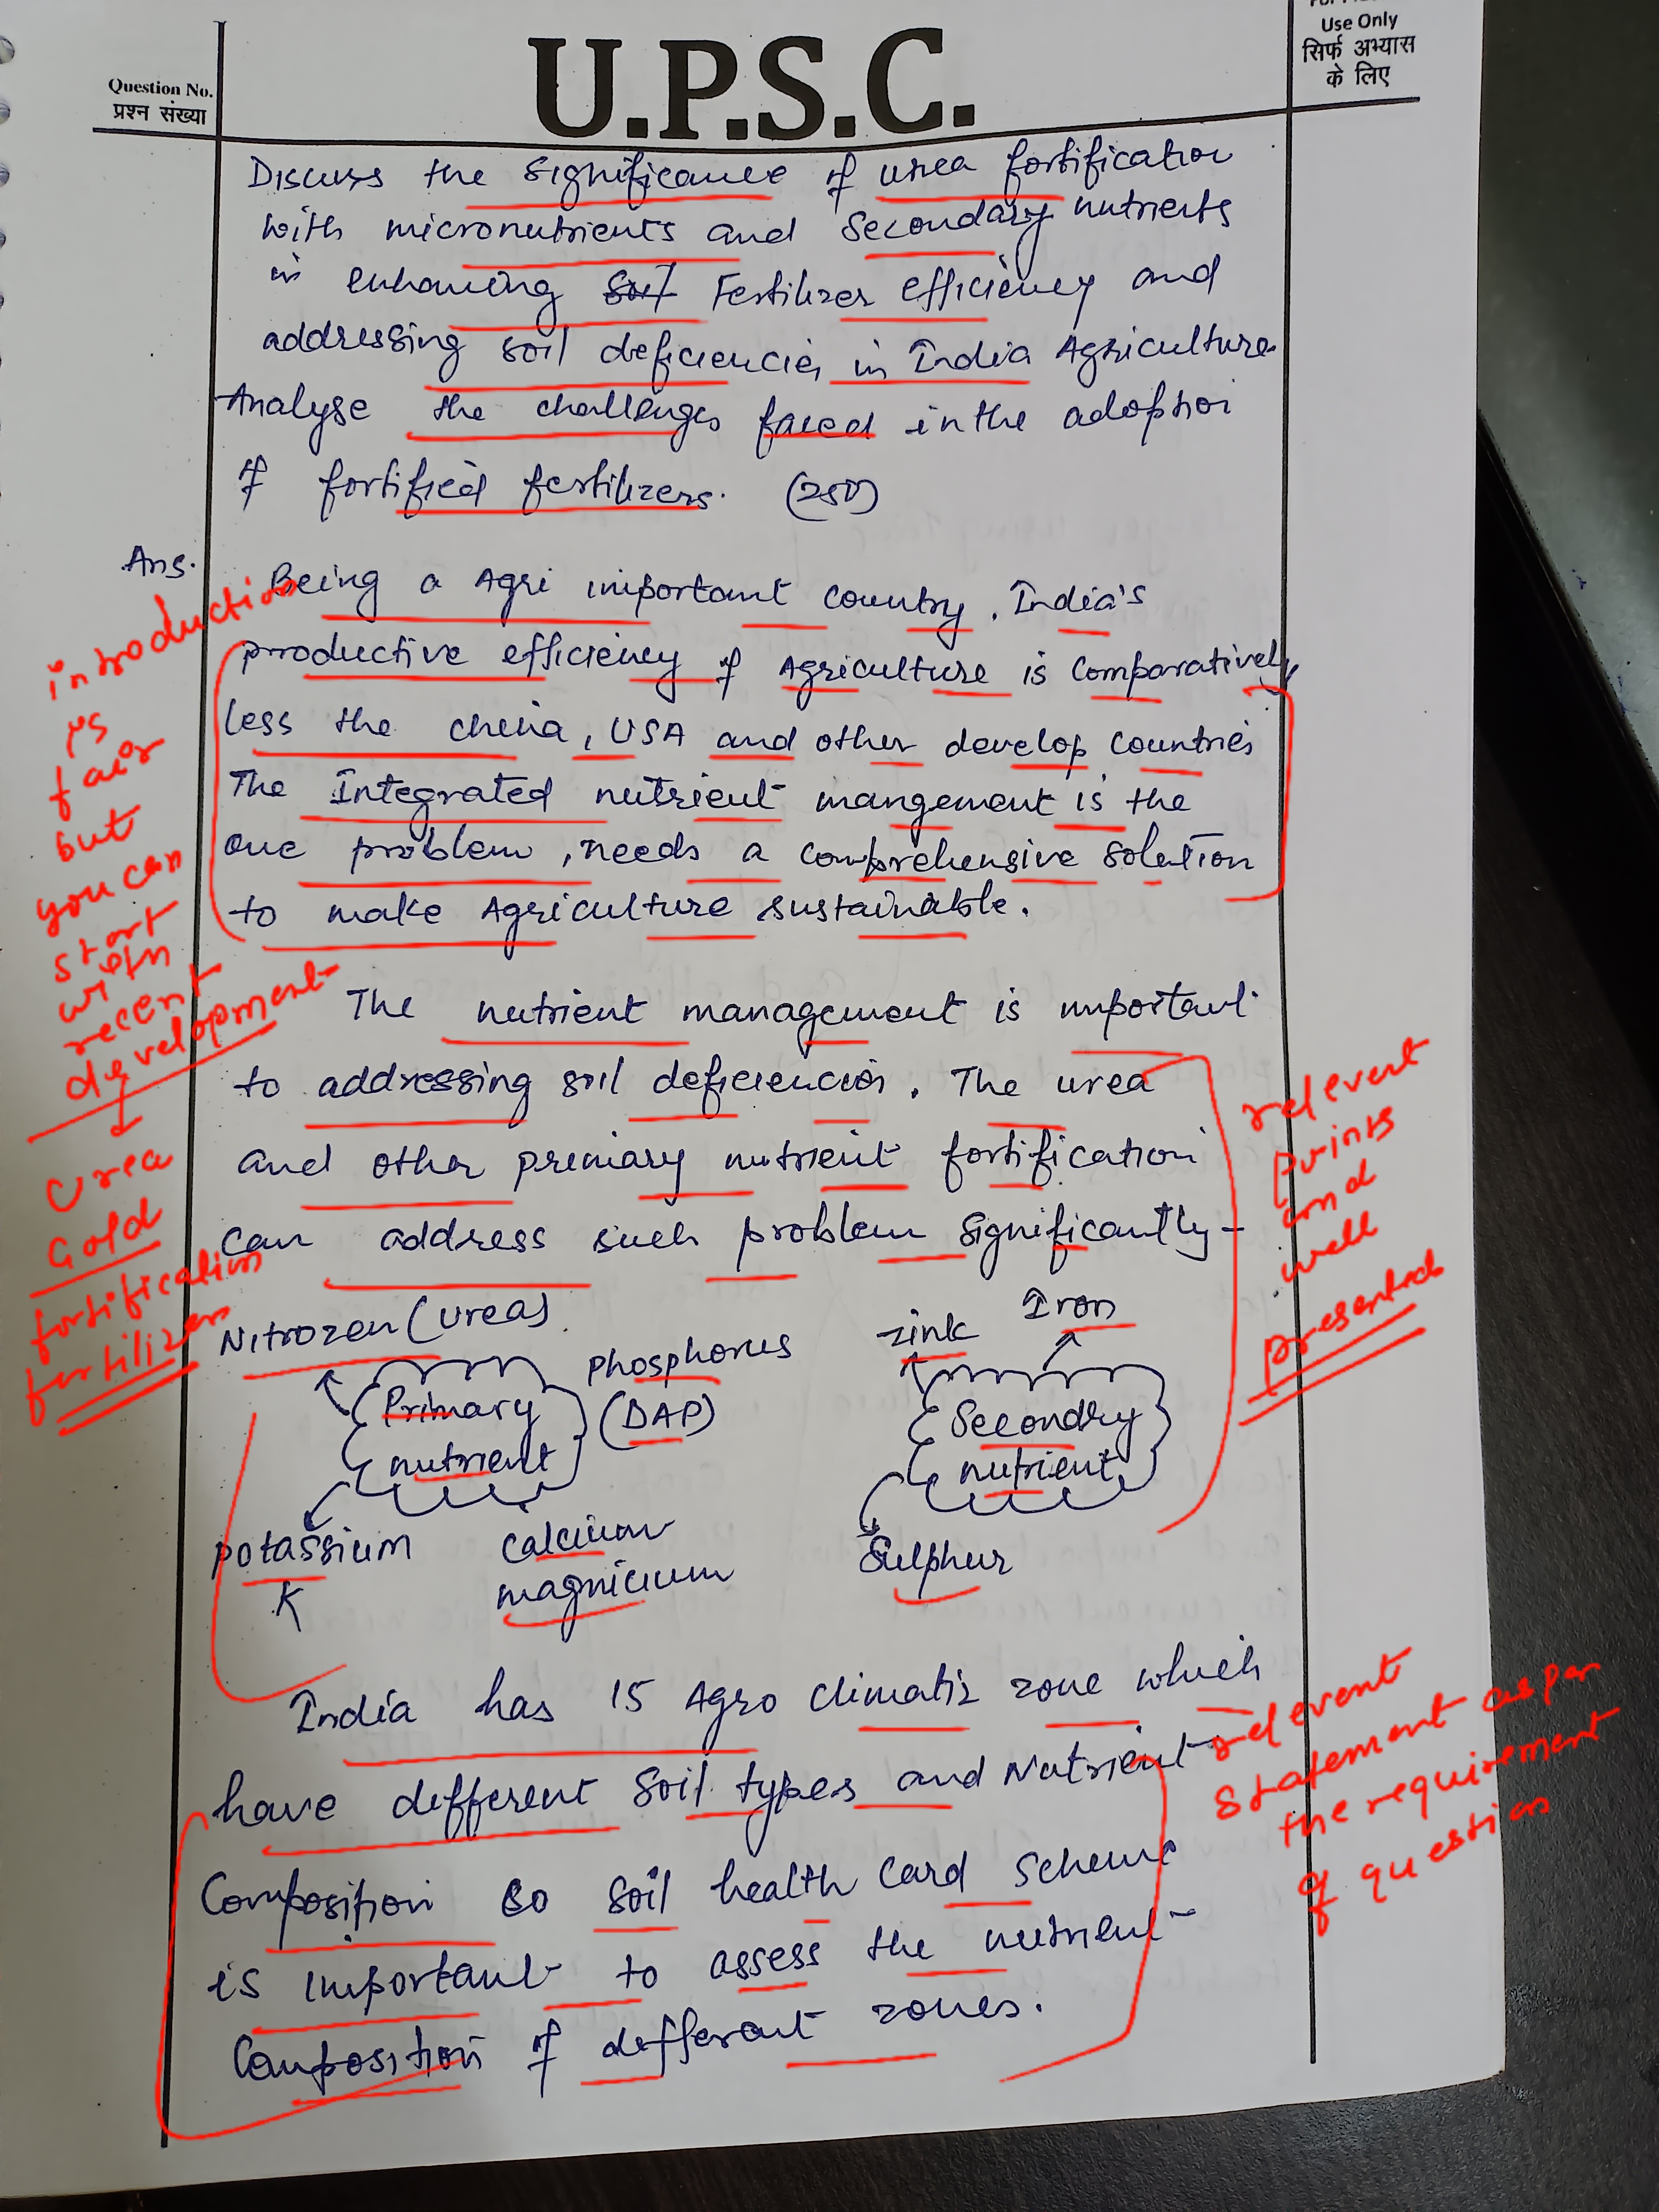 For Pra
Use Only
सिर्फ अभ्यास
के लिए
Question No.
प्रश्न संख्या
U.P.S.C.
Discuss the significance of urea fortification
with micronutrients and secondary nutrients
in enhancing soil Fertilizer efficiency and
addressing soil deficiencies in India Agriculture.
Analyse the challenges faced in the adoption
of fortified fertilizers. (250)
Ans.
Being a Agri important country, India's
productive efficiency of Agriculture is comparatively
less the china, USA and other develop countries
The Integrated nutrient mangement is the
one problem, needs a comprehensive solution
to make Agriculture sustainable.
introduction
is
fair
but
you can
start
with
recent
development
↓
Urea
Gold
fortification
fertilizer
The nutrient management is important
to addressing soil deficiencies. The urea
and other primary nutrient fortification
can address such problem significantly-
relevent
points
and
well
presented
Nitrozen (urea)
Phosphorus
(DAP)
Primary
nutrient
Potassium
K
Calcium
magnicium
zink
Iron
Secondry
nutrient
Sulphur
India has 15 Agro climatiz zone which
have different soil types and Nutrient
Composition so soil health Card Scheme
is important to assess the nutrient
Composition of different zones.
relevent
statement as per
the requirement
of question